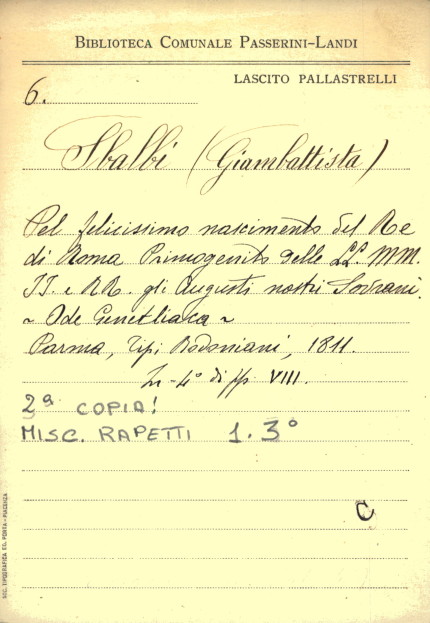 BIBLIOTECA COMUNALE PASSERINI-LANDI
LASCITO PALLASTRELLI
6.
Sbalbi (Giambattista)
Pel felicissimo nascimento del Re
di Roma Primogenito delle LL. MM.
II. e RR. gli Augusti nostri Sovrani.
~ Ode Genetliaca ~
Parma, Tipi Bodoniani, 1811.
In-4° di pp. VIII.
2ª COPIA!
MISC. RAPETTI 1.3°
C
SOC. TIPOGRAFICA ED. PORTA - PIACENZA